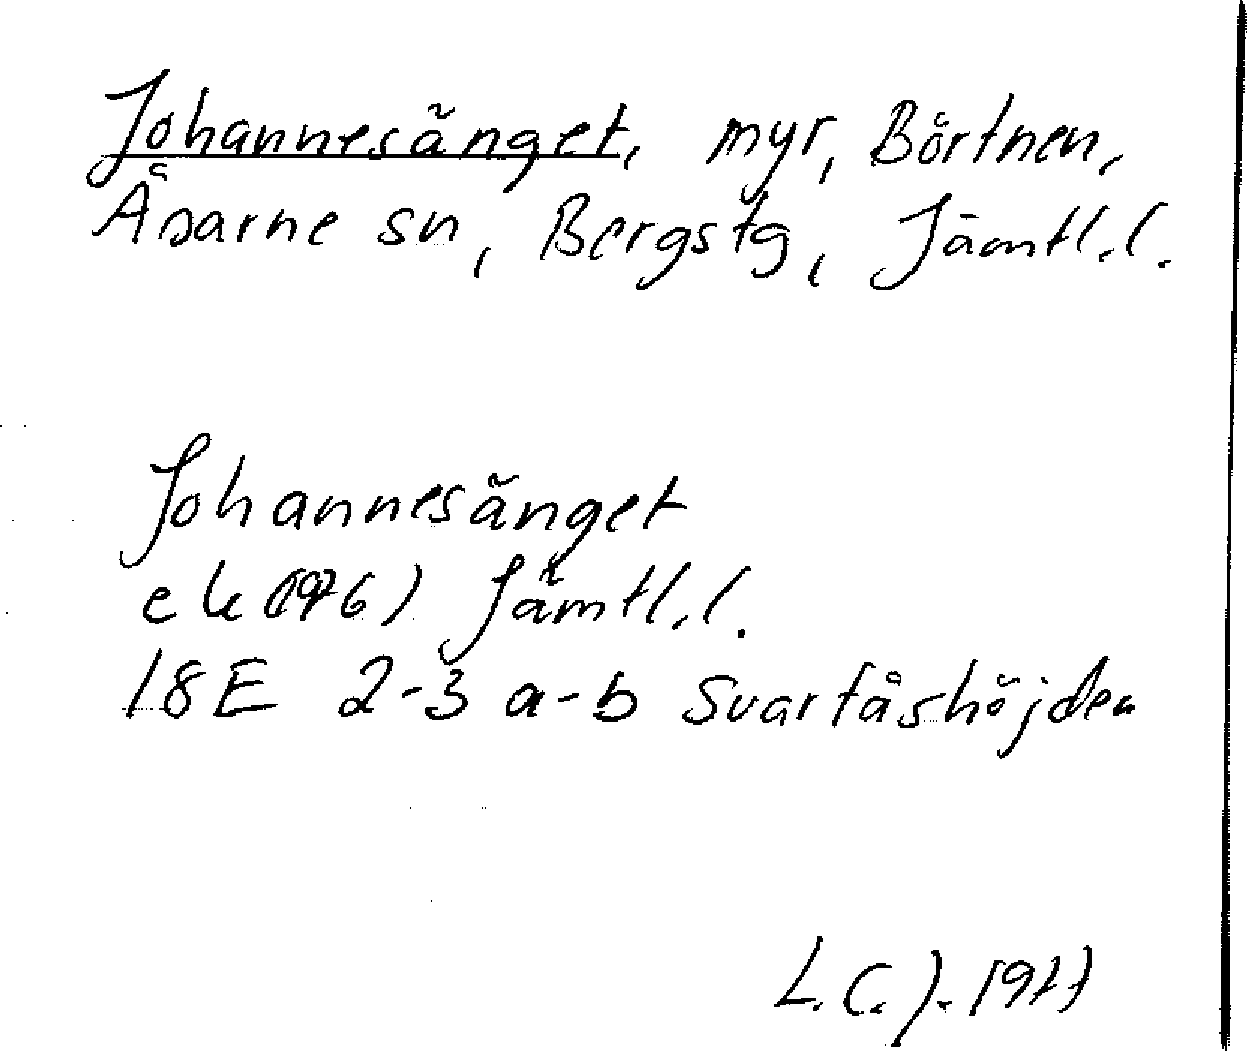 Johannesänget, myr, Börtnen,
Åsarne sn, Bergs tg, Jämtl.l.
Johannesänget
ek (1976) Jämtl.l.
18E 2-3 a-b Svartåshöjden
L.C.J. 1977